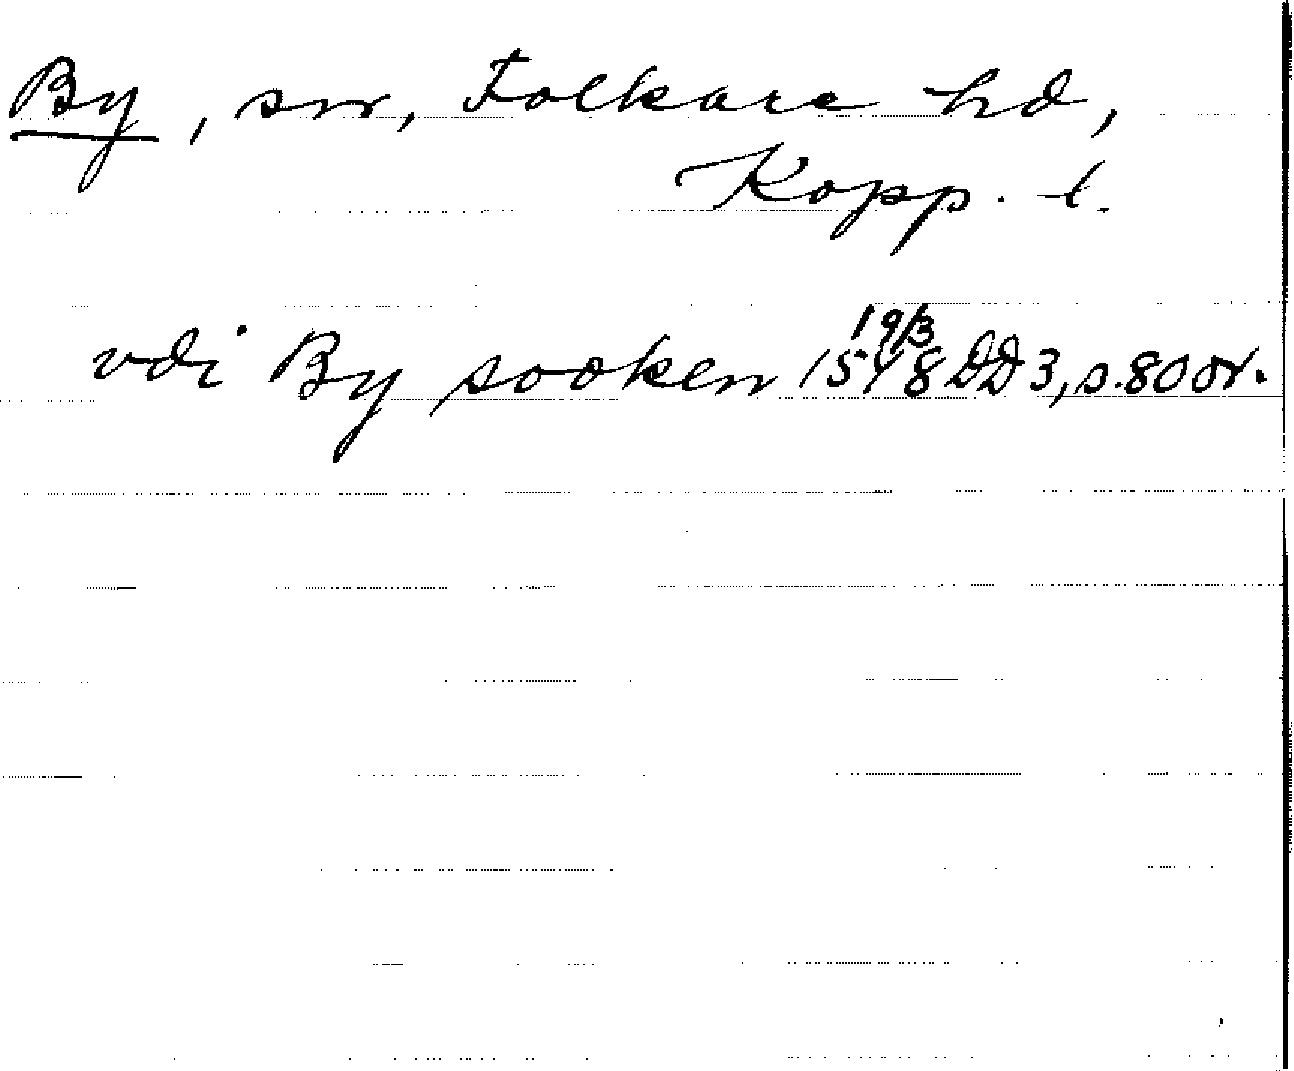 By, sn, Folkare hd,
Kopp. l.
vdi By sooken 19/3 1548 DD 3, s. 80 or.